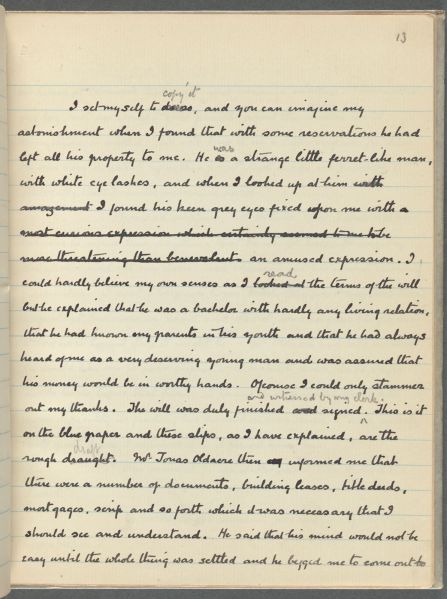 13
copy it
I set myself to dress, and you can imagine my
astonishment when I found that with some reservations he had
left all his property to me. He is was a strange little ferret-like man,
with white eyelashes, and when I looked up at him with
amazement I found his keen grey eyes fixed upon me with a
most curious expression which certainly seemed to me to be
more threatening than benevolent an amused expression. I
could hardly believe my own senses as I looked at read the terms of the will
but he explained that he was a bachelor with hardly any living relation,
that he had known my parents in his youth and that he had always
heard of me as a very deserving young man and was assured that
his money would be in worthy hands. Of course I could only stammer
out my thanks. The will was duly finished and signed and witnessed by my clerk. This is it
on the blue paper and these slips, as I have explained, are the
rough draught draft. Mr Jonas Oldacre then informed me that
there were a number of documents, building leases, title deeds,
mortgages, scrip and so forth which it was necessary that I
should see and understand. He said that his mind would not be
easy until the whole thing was settled and he begged me to come out to